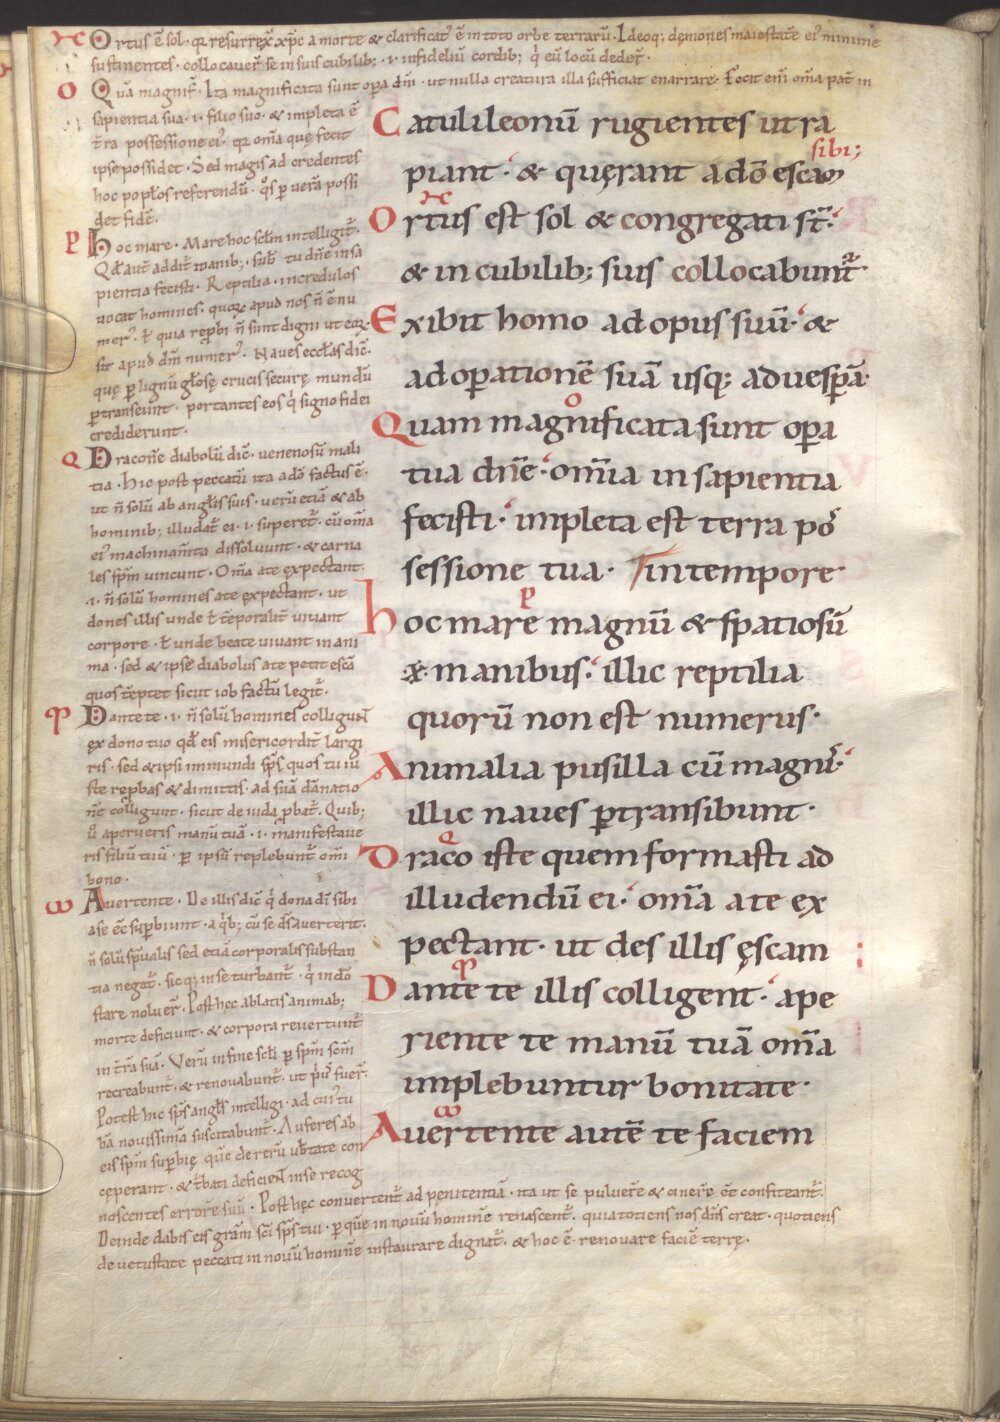 Ortus ē sol · qr resurrex̄ xp̄c a morte & clarificatꝰ ē in toto orbe terrarū · Ideoq; dęmones maiestatē eiꝰ minime
sustinentes · collocauer̄ se in suis cubilib; · i · infideliū cordib; qͥ eū locū deder̄ ·
O Quā magnif̄ · Ita magnificata sunt oꝑa dn̄i · ut nulla creatura illa sufficiat enarrare · Fecit eni om̄a pat̄ in
sapientia sua · i · filio suo · & impleta ē
t̄ra possessione eiꝰ · qr om̄a quę fecit
ipse possidet · Sed magis ad credentes
hoc poplos referendū · qͦs ꝑ uerā possi
det fidē ·
P hoc mare · Mare hoc sclm̄ intelligit̄ ·
Qd̄ aut̄ addit̄ manib; · sub̄ tu dn̄e in sa
pientia fecisti · Reptilia · incredulos
uocat homines · quoꝝ apud nos n̄ ē nu
merꝰ · ł quia rep̄bi n̄ sunt digni ut eoꝝ
sit apud dn̄m numerꝰ · Naues eccl̄as dic̄ ·
quę ꝑ lignū gl̄osę crucis securę mundū
ꝑtranseunt · portantes eos qͥ signo fidei
crediderunt ·
Q Draconē diabolū dic̄ · uenenosū mali
tia · hic post peccatū ita a dō factus ē ·
ut n̄ solū ab angl̄is suis · uerū etiā & ab
hominib; illudat̄ ei · i · superet̄ · cū om̄a
eiꝰ machinam̄ta dissoluunt · & carna
les sp̄m uincunt · Om̄a a te expectant ·
· i · n̄ solū homines a te ęxpectant · ut
dones illis unde ł tēporalit̄ uiuant
corpore · ł unde beate uiuant in ani
ma · sed & ipse diabolus a te petit escā
quos tēptet sicut iob factū legit̄ ·
Dante te · i · n̄ solū homines colligunt
ęx dono tuo qd̄ eis misericordit̄ largi
ris · sed & ipsi immundi sp̄s quos tu iu
ste rep̄bas & dimittis · ad suā dānatio
nē colligunt · sicut de iuda ꝓbat̄ · Quib;
ū aperueris manū tuā · i · manifestaue
ris filiū tuū · ꝑ ipsū replebunt̄ om̄i
bono ·
ω Auertente · De illis dic̄ qͥ dona dī sibi
a se eē suꝑbiunt · a qͥb; cū se dś auerterit ·
n̄ solū sp̄ualis sed etiā corporalis substan
tia negat̄ · sicq; in se turbant̄ · qͥ in dō
stare noluer̄ · Post hęc ablatis animab;
morte deficiunt · & corpora reuertunt̄
in t̄rā suā · Verū in fine scl̄i ꝑ sp̄m sc̄m
recreabunt̄ · & renouabunt̄ · ut pͥꝰ fuer̄ ·
Potest hic sp̄s angl̄s intelligi · ad cuiꝰ tu
bā nouissimā suscitabunt̄ · Auferes ab
eis sp̄m suꝑbię quē de rerū ub̄tate con
cęperant · & t̄bati deficient in se recog
noscentes errorē suū · Post hęc conuertent̄ ad penitentiā · ita ut se puluerē & cinerē eē confiteant̄ ·
Deinde dabis eis gram̄ sc̄i sp̄s tui · ꝑ quē in nouū hominē renascent̄ · quia totiens nos dn̄s creat · quotiens
de uetustate peccati in nouū hominē instaurare dignat̄ · & hoc ē · renouare faciē terrę ·
Catuli leonū rugientes ut ra
sibi;
piant · & quęrant a dō escam
Ortus est sol & congregati sť ·
& in cubilib; suis collocabunt̄ ·
Exibit homo ad opus suū · &
ad oꝑationē suā usq; ad uesꝑā ·
Quam magnificata sunt oꝑa
tua dn̄e · om̄ia in sapientia
fecisti · impleta est terra pos
sessione tua · in tempore
P
hoc mare magnū & spatiosū
manibus · illic reptilia
quorū non est numerus ·
Animalia pusilla cū magnis ·
illic naues ꝑtransibunt ·
Q
Draco iste quem formasti ad
illudendū ei · om̄a a te ex
pectant · ut des illis ęscam
Dante te illis colligent · ape
riente te manū tuā om̄a
implebuntur bonitate ·
ω
Auertente autē te faciem